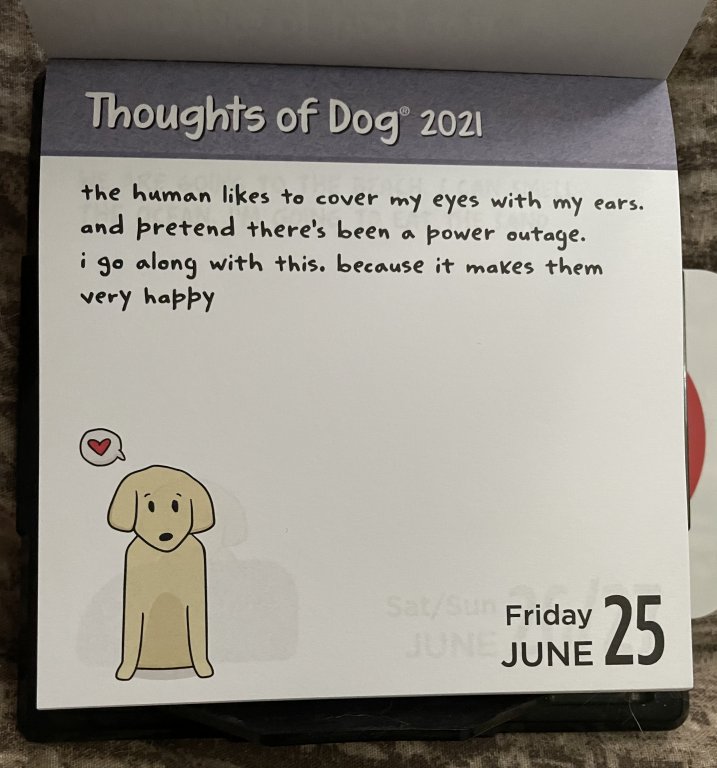 Thoughts of Dog® 2021
the human likes to cover my eyes with my ears.
and pretend there's been a power outage.
i go along with this. because it makes them
very happy
Sat/Sun
Friday
JUNE
JUNE 25